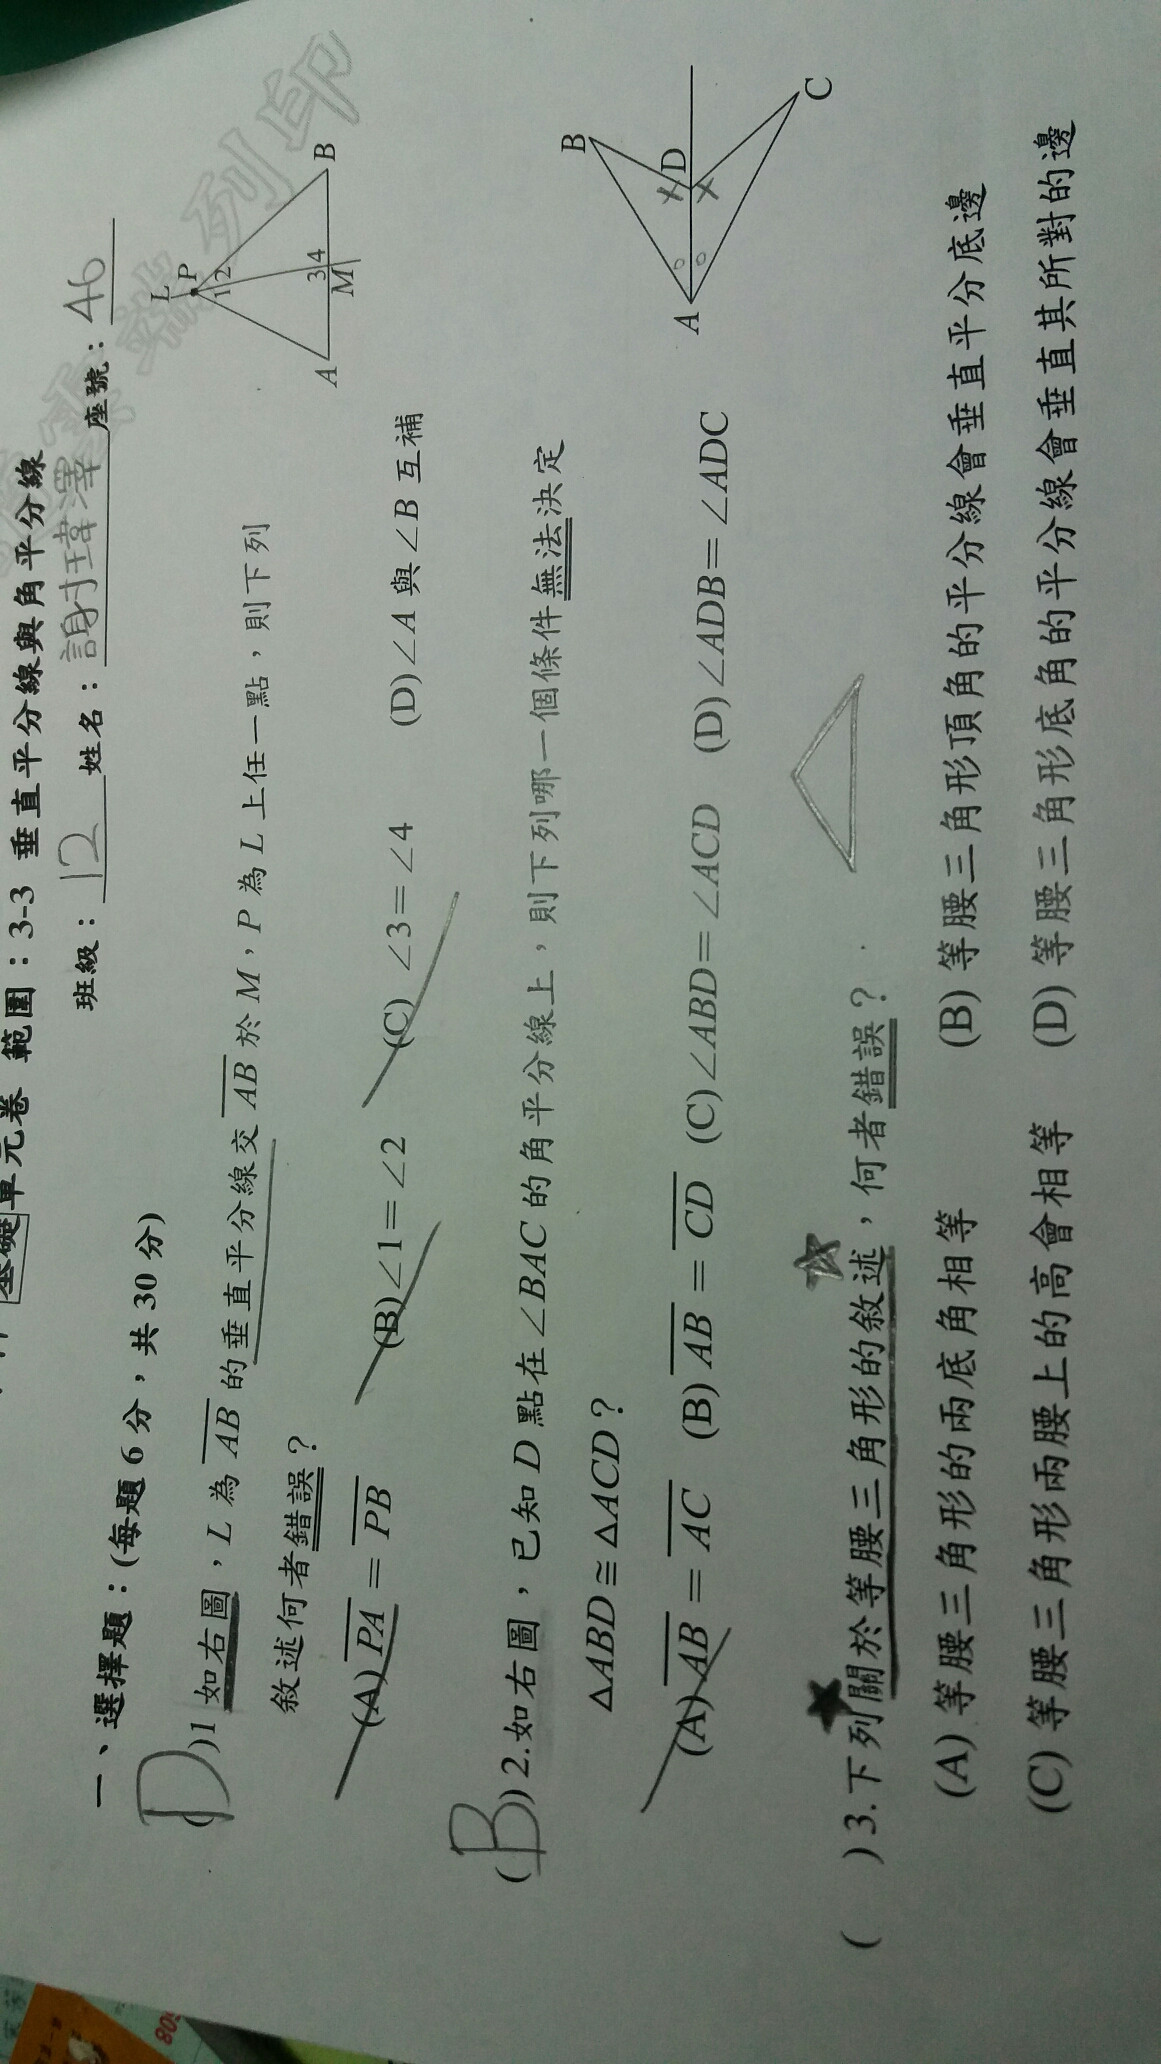 基礎單元卷 範圍：3-3 垂直平分線與角平分線
班級：12 姓名：謝瑋澤 座號：46
一、選擇題：(每題6分，共30分)
(D)1 如右圖，L為AB的垂直平分線交AB於M，P為L上任一點，則下列
敘述何者錯誤？
(A) PA = PB (B)∠1=∠2 (C) ∠3=∠4 (D)∠A與∠B互補
L
P
1 2
3 4
A M B
(B)2.如右圖，已知D點在∠BAC的角平分線上，則下列哪一個條件無法決定
△ABD≅△ACD？
(A) AB = AC (B) AB = CD (C)∠ABD=∠ACD (D)∠ADB=∠ADC
B
A D
C
( )3.下列關於等腰三角形的敘述，何者錯誤？
(A) 等腰三角形的兩底角相等 (B) 等腰三角形頂角的平分線會垂直平分底邊
(C) 等腰三角形兩腰上的高會相等 (D) 等腰三角形底角的平分線會垂直其所對的邊
列印